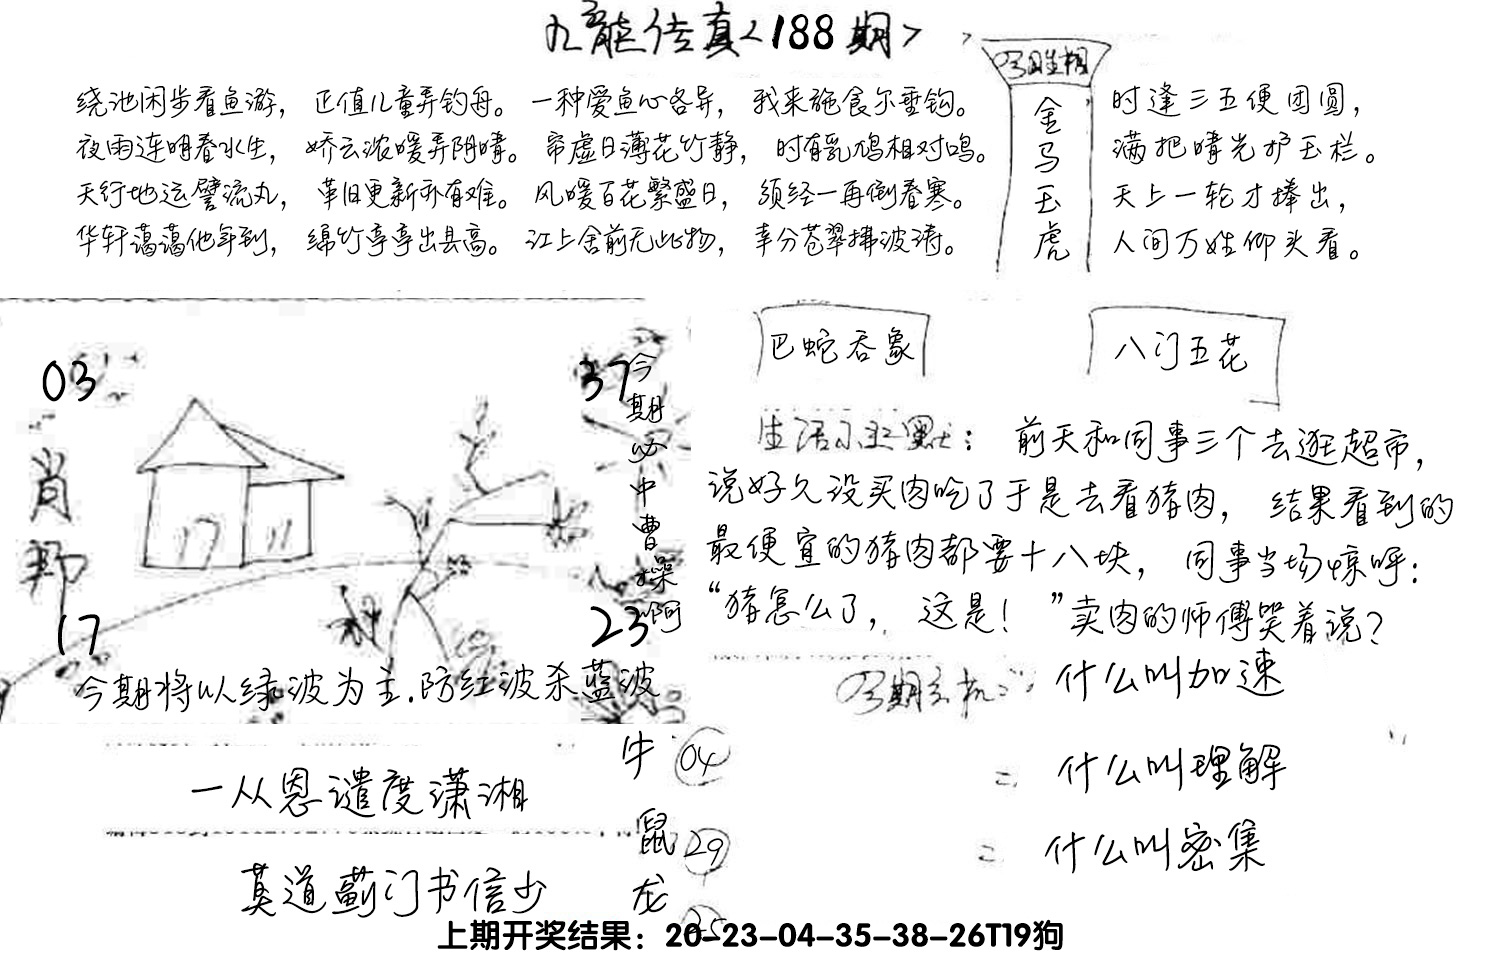 九龍传真<188期>
今期生相
金马玉虎
绕池闲步看鱼游，正值儿童弄钓舟。一种爱鱼心各异，我来施食尔垂钩。
夜雨连明春水生，娇云浓暖弄阴晴。帘虚日薄花竹静，时有乳鸠相对鸣。
天行地运譬流丸，革旧更新亦有难。风暖百花繁盛日，须经一再倒春寒。
华轩蔼蔼他年到，绵竹亭亭出县高。江上舍前无此物，幸分苍翠拂波涛。
时逢三五便团圆，
满把晴光护玉栏。
天上一轮才捧出，
人间万姓仰头看。
03
37
肖
17
23
今期必中曹操啊
今期将以绿波为主.防红波杀蓝波
巴蛇吞象
八门五花
生活小幽默：前天和同事三个去逛超市，
说好久没买肉吃了于是去看猪肉，结果看到的
最便宜的猪肉都要十八块，同事当场惊呼：
“猪怎么了，这是！”卖肉的师傅哭着说？
今期玄机：什么叫加速
= 什么叫理解
= 什么叫密集
一从恩谴度潇湘
莫道蓟门书信少
牛 04
鼠 29
龙 25
上期开奖结果：20-23-04-35-38-26T19狗